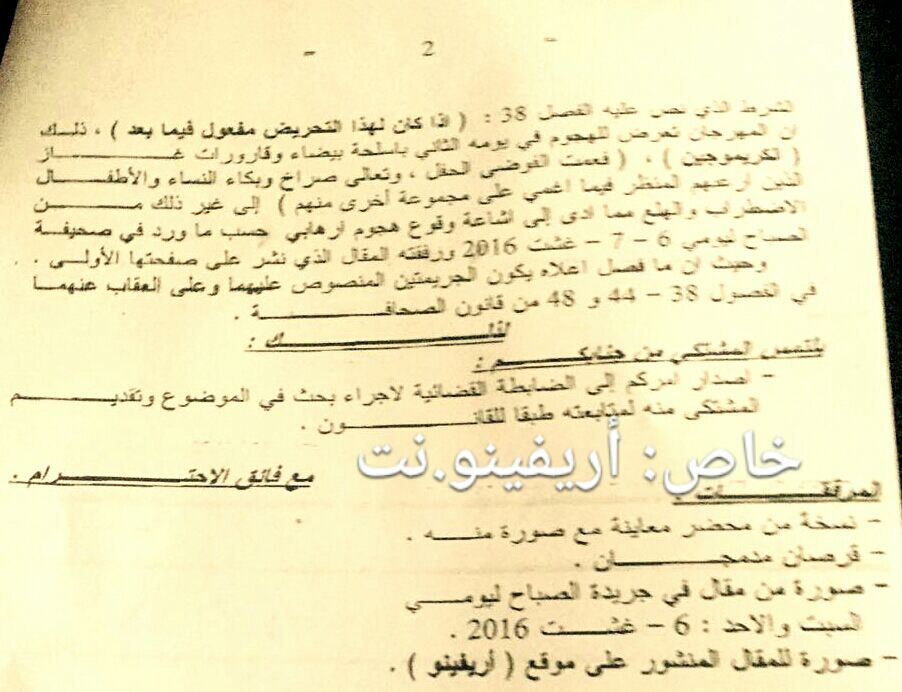 - 2 -
الشرط الذي نص عليه الفصل 38 : ( اذا كان لهذا التحريض مفعول فيما بعد ) ، ذلك
ان المهرجان تعرض للهجوم في يومه الثاني باسلحة بيضاء وقارورات غاز
( الكريموجين ) ، ( فعمت الفوضى الحفل ، وتعالى صراخ وبكاء النساء والأطفال
الذين ارعدهم المنظر فيما اغمي على مجموعة أخرى منهم ) إلى غير ذلك من
الاضطراب والهلع مما ادى إلى اشاعة وقوع هجوم ارهابي حسب ما ورد في صحيفة
الصباح ليومي 6 – 7 – غشت 2016 ورفقته المقال الذي نشر على صفحتها الأولى .
وحيث ان ما فصل اعلاه يكون الجريمتين المنصوص عليهما وعلى العقاب عنهما
في الفصول 38 – 44 و 48 من قانون الصحافة .
لذلك :
يلتمس المشتكي من جنابكم :
- اصدار امركم إلى الضابطة القضائية لاجراء بحث في الموضوع وتقديم
المشتكى منه لمتابعته طبقا للقانون .
خاص: أريفينو.نت
مع فائق الاحترام .
المرفقات :
- نسخة من محضر معاينة مع صورة منه .
- قرصان مدمجان .
- صورة من مقال في جريدة الصباح ليومي
السبت والاحد : 6 – غشت 2016 .
- صورة للمقال المنشور على موقع ( أريفينو ) .